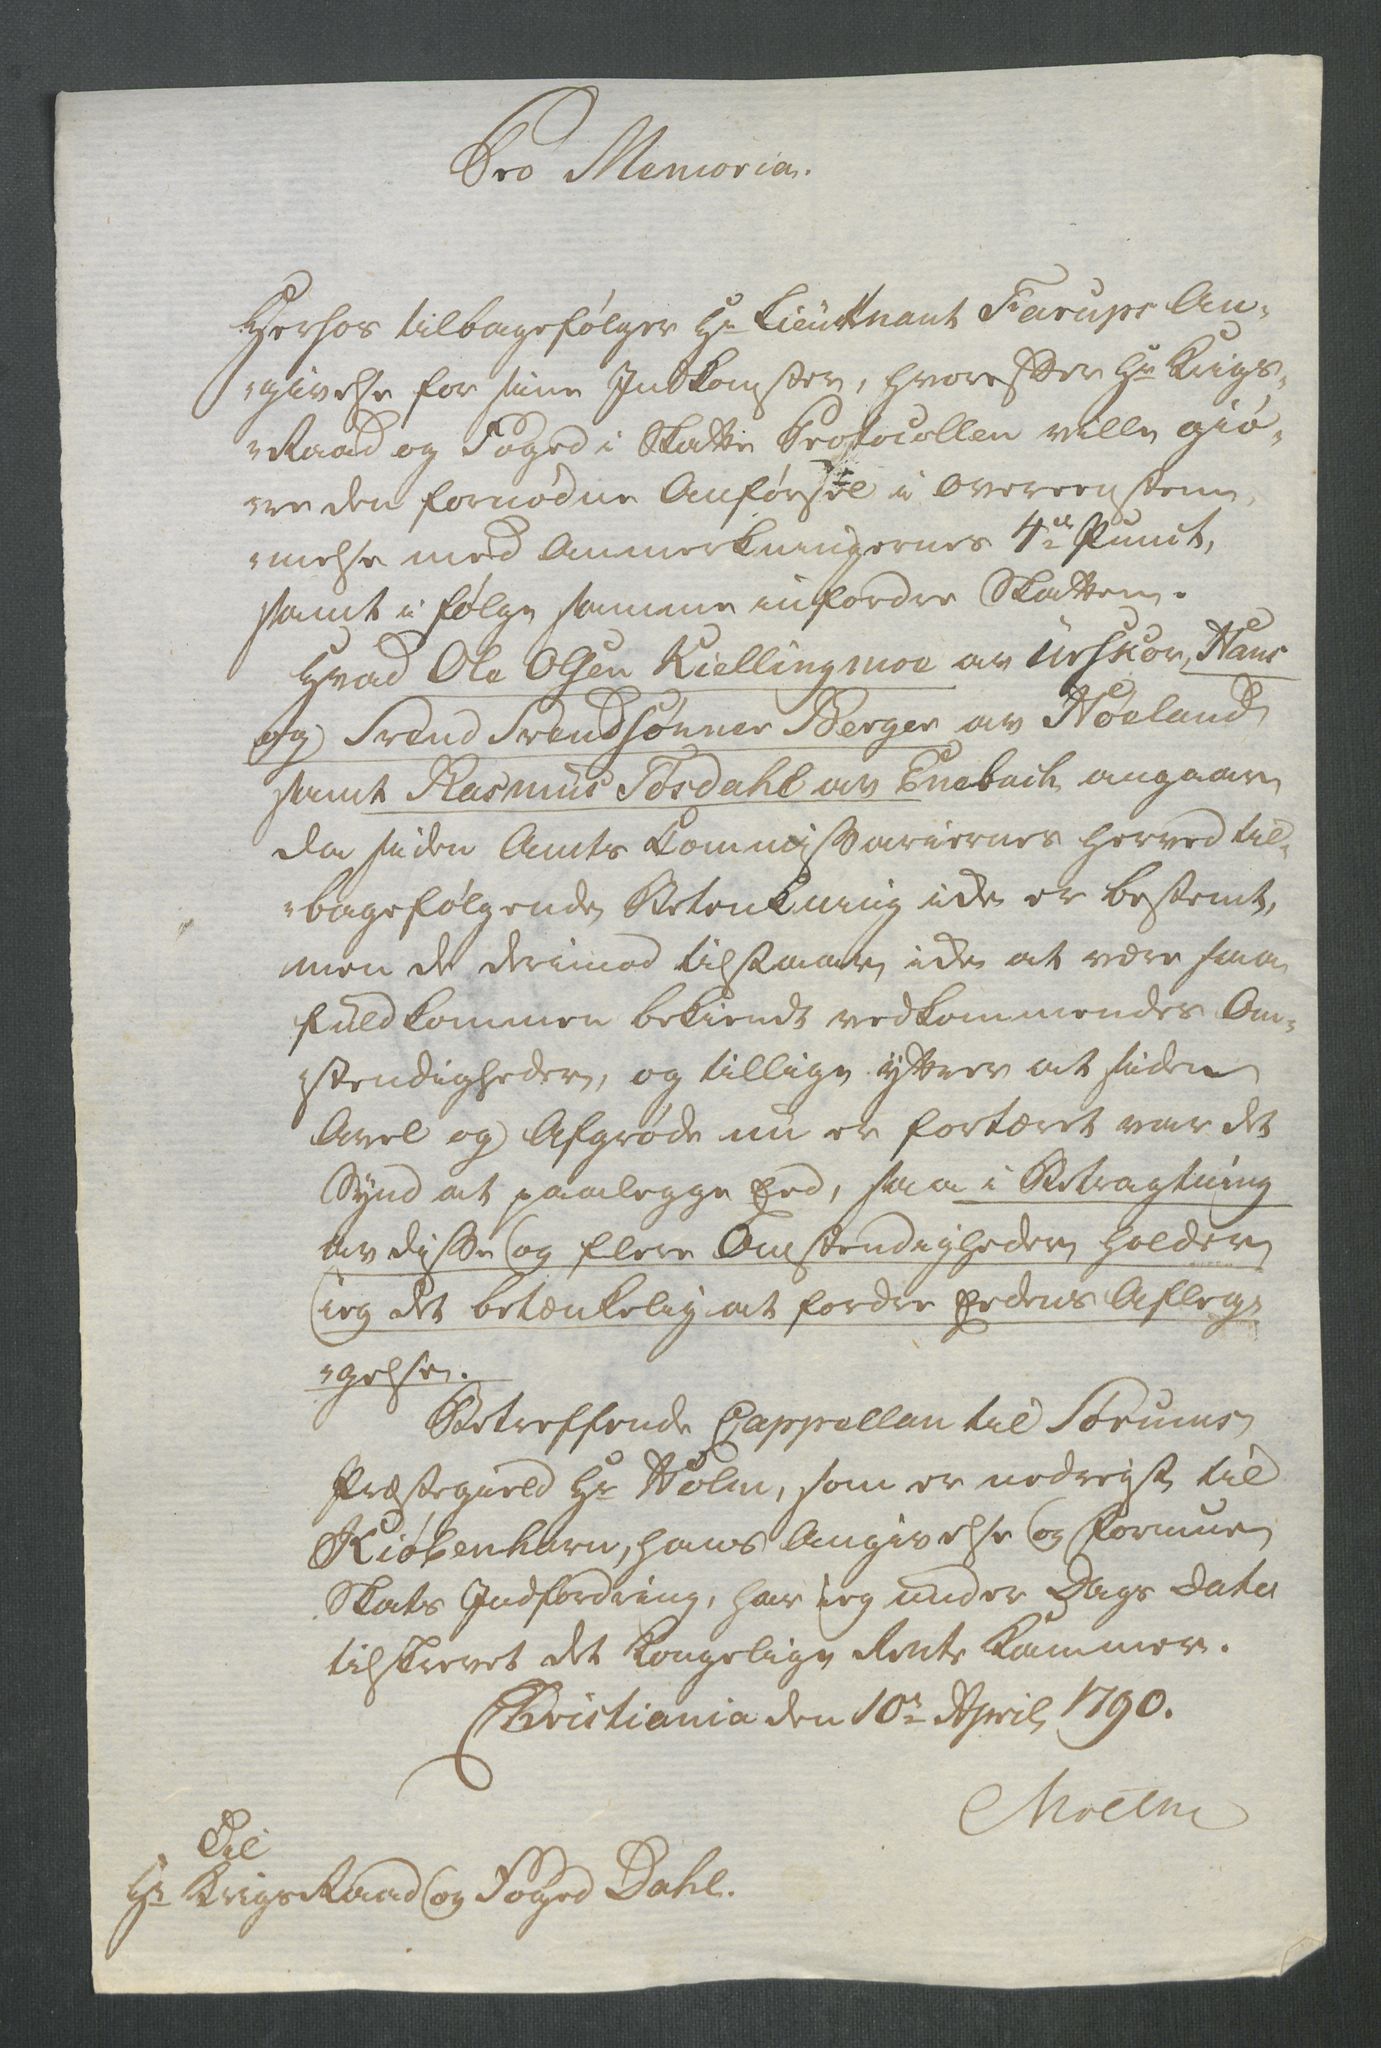 Pro Memoria.
Herhos tilbagefølger Hr Lieutnant Faarups An-
-givelse for sine Indkomster, hvorefter Hr Krigs-
-Raad og Foged i Skatte Protocollen ville giø-
-re den fornødne Anførsel i Overeenstem-
-melse med Anmerkningernes 4de Punct,
samt i følge samme infordre Skatten.
Hvad Ole Olsen Kiellingmoe av Urskov, Hans
og Svend Svendsønner Berger av Høeland
samt Rasmus Tosdahl av Enebach angaar,
da siden Amts Commissariernes herved til-
-bagefølgende Betenkning icke er bestemt,
men de derimod tilstaaer icke at være saa
fuldkommen bekiendt vedkommendes Om-
-stendigheder, og tillige ÿttrer at siden
Avel og Afgrøde nu er fortæret var det
Synd at paalegge Eed, saa i Betragtning
av disse og flere Omstendigheder holder
ieg det betænkelig at fordre Eedens Afleg-
-gelse.
Betreffende Cappellan til Sørums
Præstegield Hr Holm, som er nedreist til
Kiøbenhavn, hans Angivelse og Formue
Skats Indfordring, har ieg under Dags Dato
tilskrevet det kongelige Rente Kammer.
Christiania den 10de April 1790.
Moltke
Til
Hr KrigsRaad og Foged Dahl.